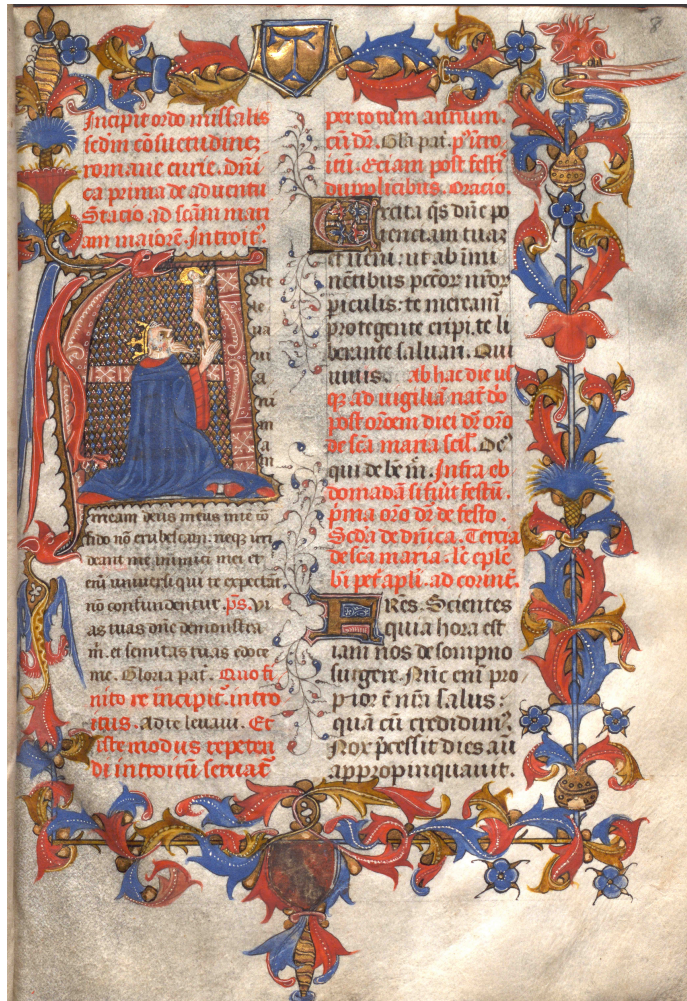 8
Incipit ordo missalis
scdm cōsuetudinez
romane curie. Dñi
ca prima de aduentu
Stacio ad scām mari
am maiorē. Introitꝰ.
Ad te
le
ua
ui
a
ni
m
am
meam deus meus in te cō
fido nō erubescam: neqꝫ irri
deant me inimici mei et
eni uniuersi qui te expectāt
nō confundentur. p̄s. Vi
as tuas dñe demonstra
m̄. et semitas tuas edoce
me. Gloria pat̄. Quo fi
nito re incipit̄. intro
itus. Ad te leuaui. Et
iste modus repeten
di introitū seruat̄
per totum annum.
cū dr̄. Gl̄a pat̄. p̄ intro
itū. Eciam post festi
dupplicibus. Oracio.
Excita qs dñe po
tenciam tuaz
et ueni: ut ab īmi
nētibus pctōr nrōr
piculis: te meream̄
protegente eripi. te li
berante saluari. Qui
uiuis. Ab hac die us
qꝫ ad uigiliā nat̄ dō
post orōem diei dr̄ orō
de scā maria scil. Deꝰ
qui de be m̄. Infra eb
domadā si fiūt festū.
p̄ma orō dr̄ de festo.
Scd̄a de dnica. Tercia
de scā maria. lc̄ ep̄le
bī pet̄ apl̄i. ad corint̄.
FRes. Scientes
quia hora est
iam nos de sompno
surgere. Nūc enī pro
prior ē nrā salus:
quā cū credidimꝰ.
Nox p̄cessit dies au
appropinquauit.